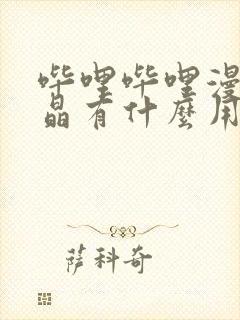 哔哩哔哩漫
晶有什麼用
萨科奇